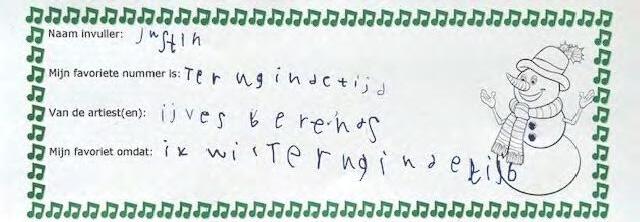 Naam invuller: Justin
Mijn favoriete nummer is: Terugindetijd
Van de artiest(en): ijves berends
Mijn favoriet omdat: ik wisTerugindetijb